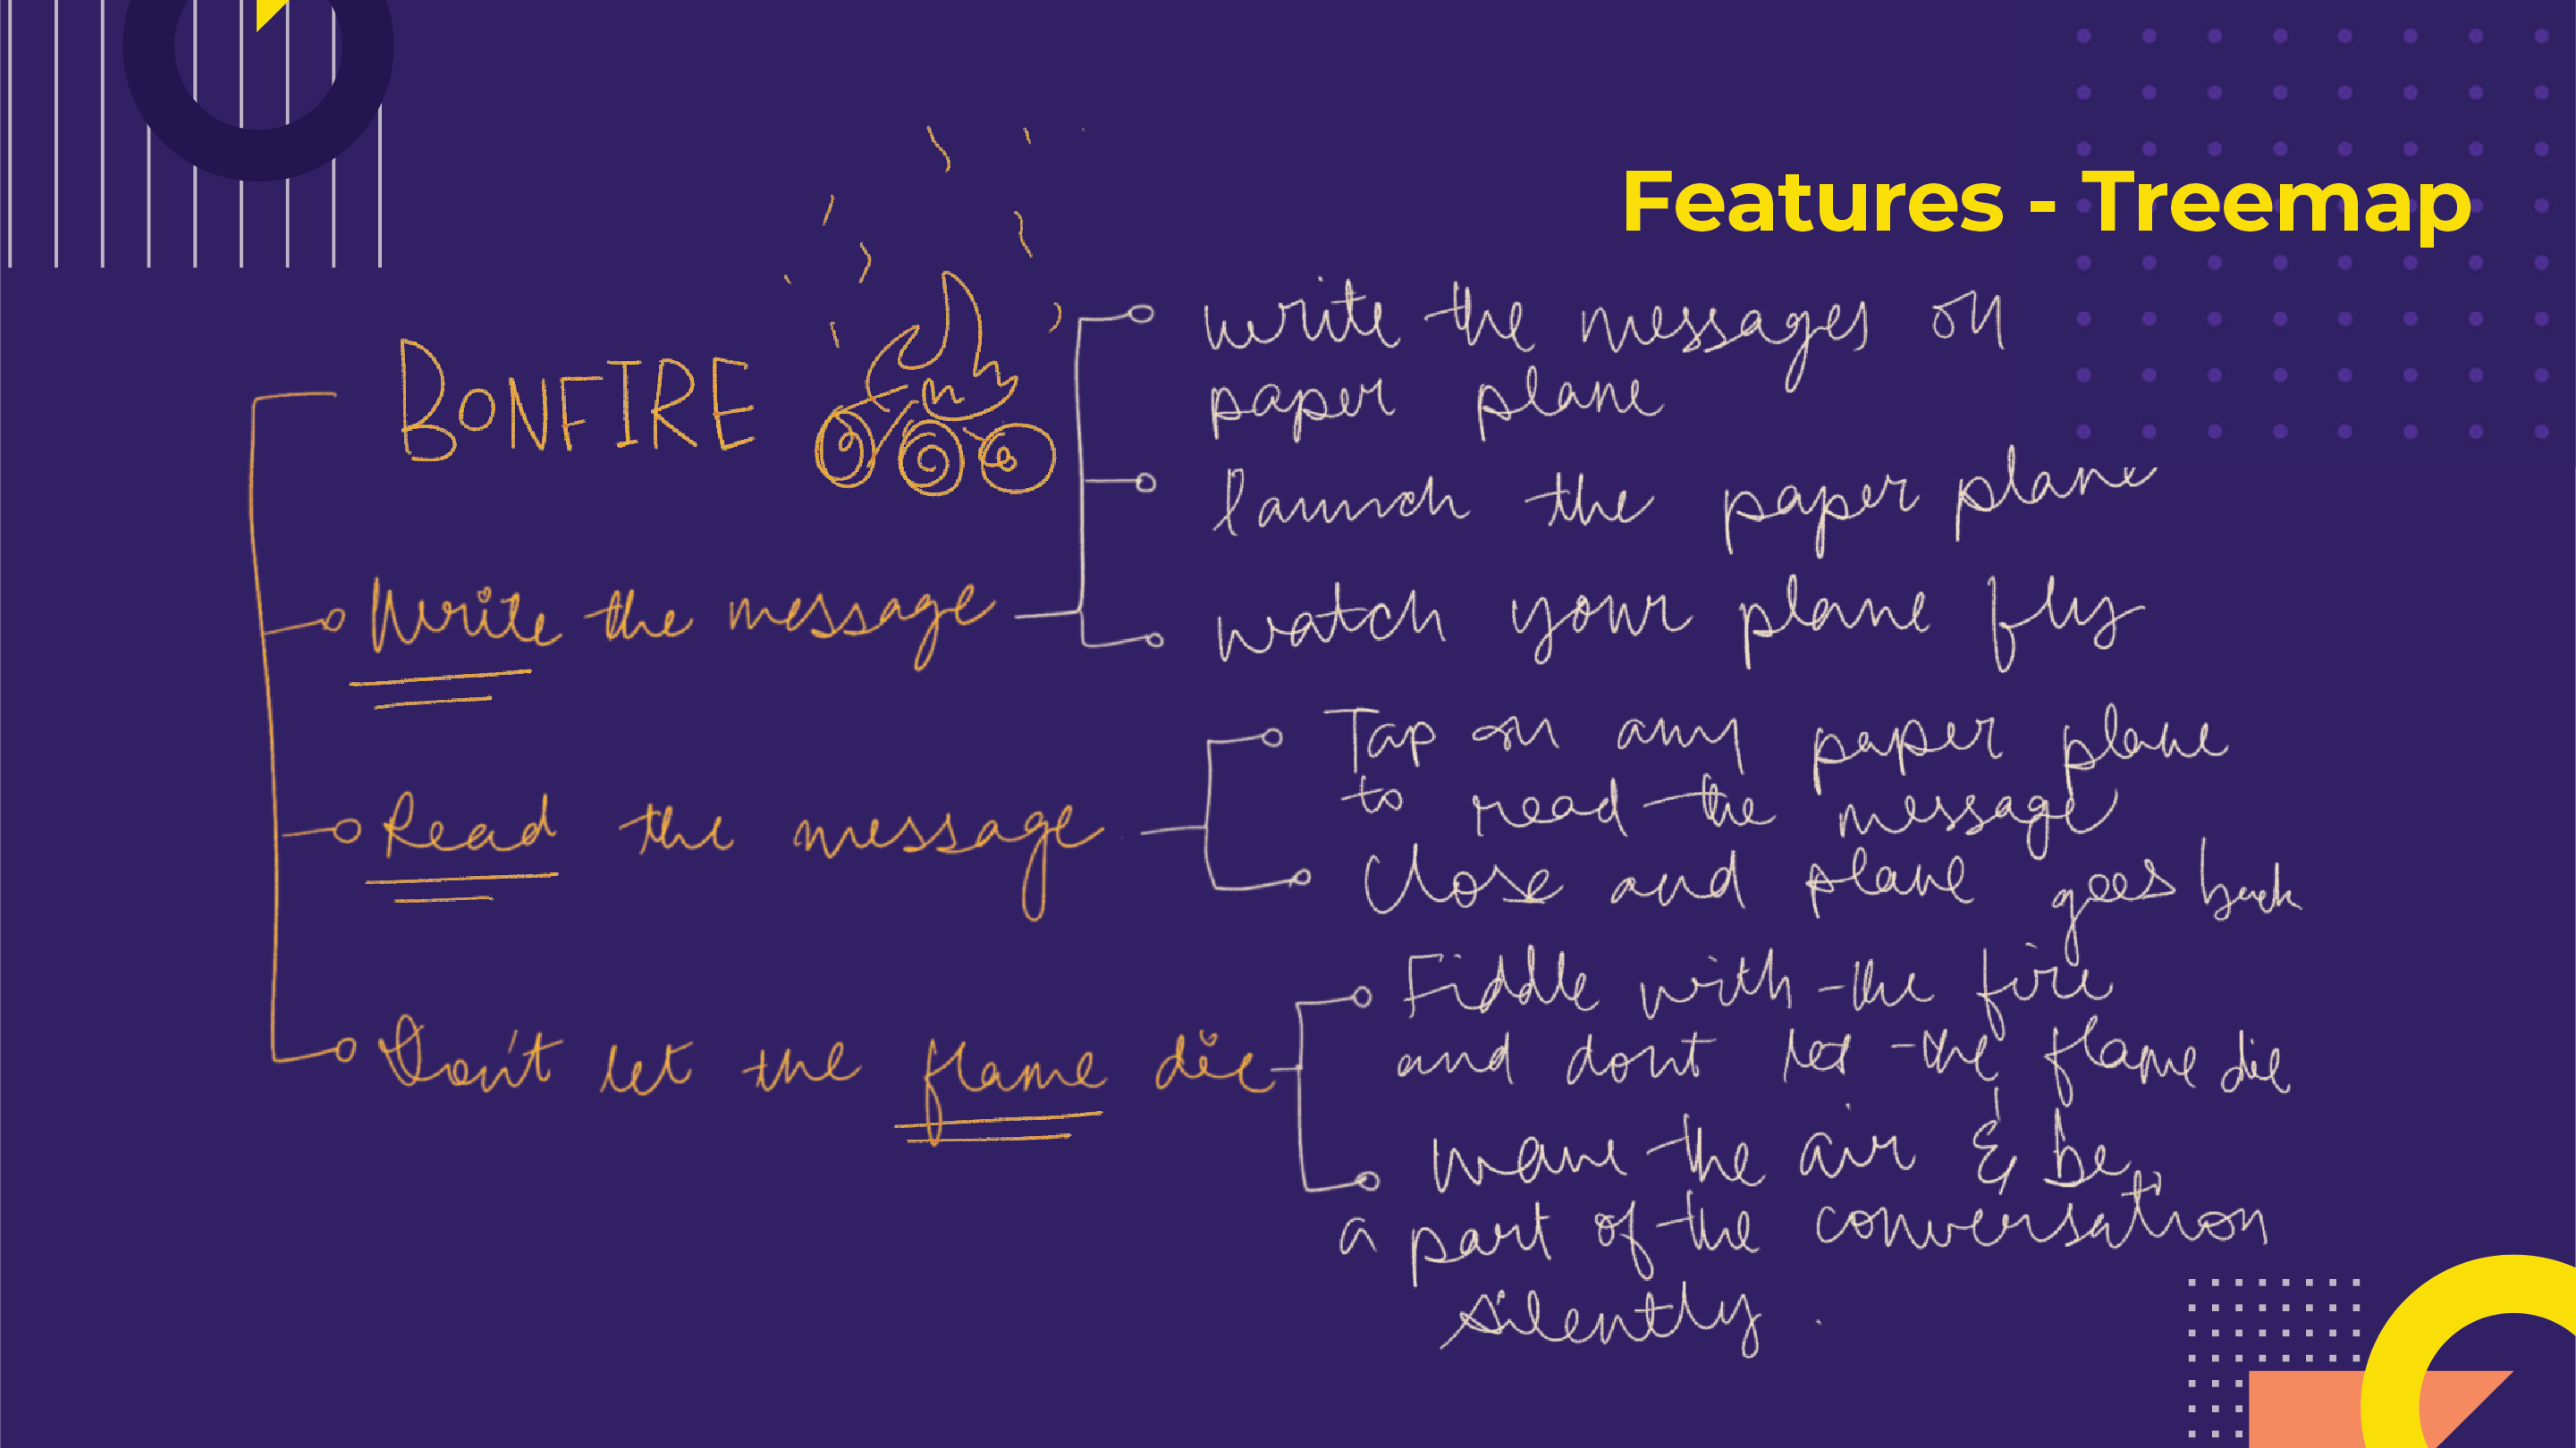 Features - Treemap
BONFIRE
write the messages on
paper plane
launch the paper plane
Write the message
watch your plane fly
Read the message
Tap on any paper plane
to read the message
Close and plane goes back
Don't let the flame die
Fiddle with the fire
and dont let the flame die
the air & be
a part of the conversation
silently.